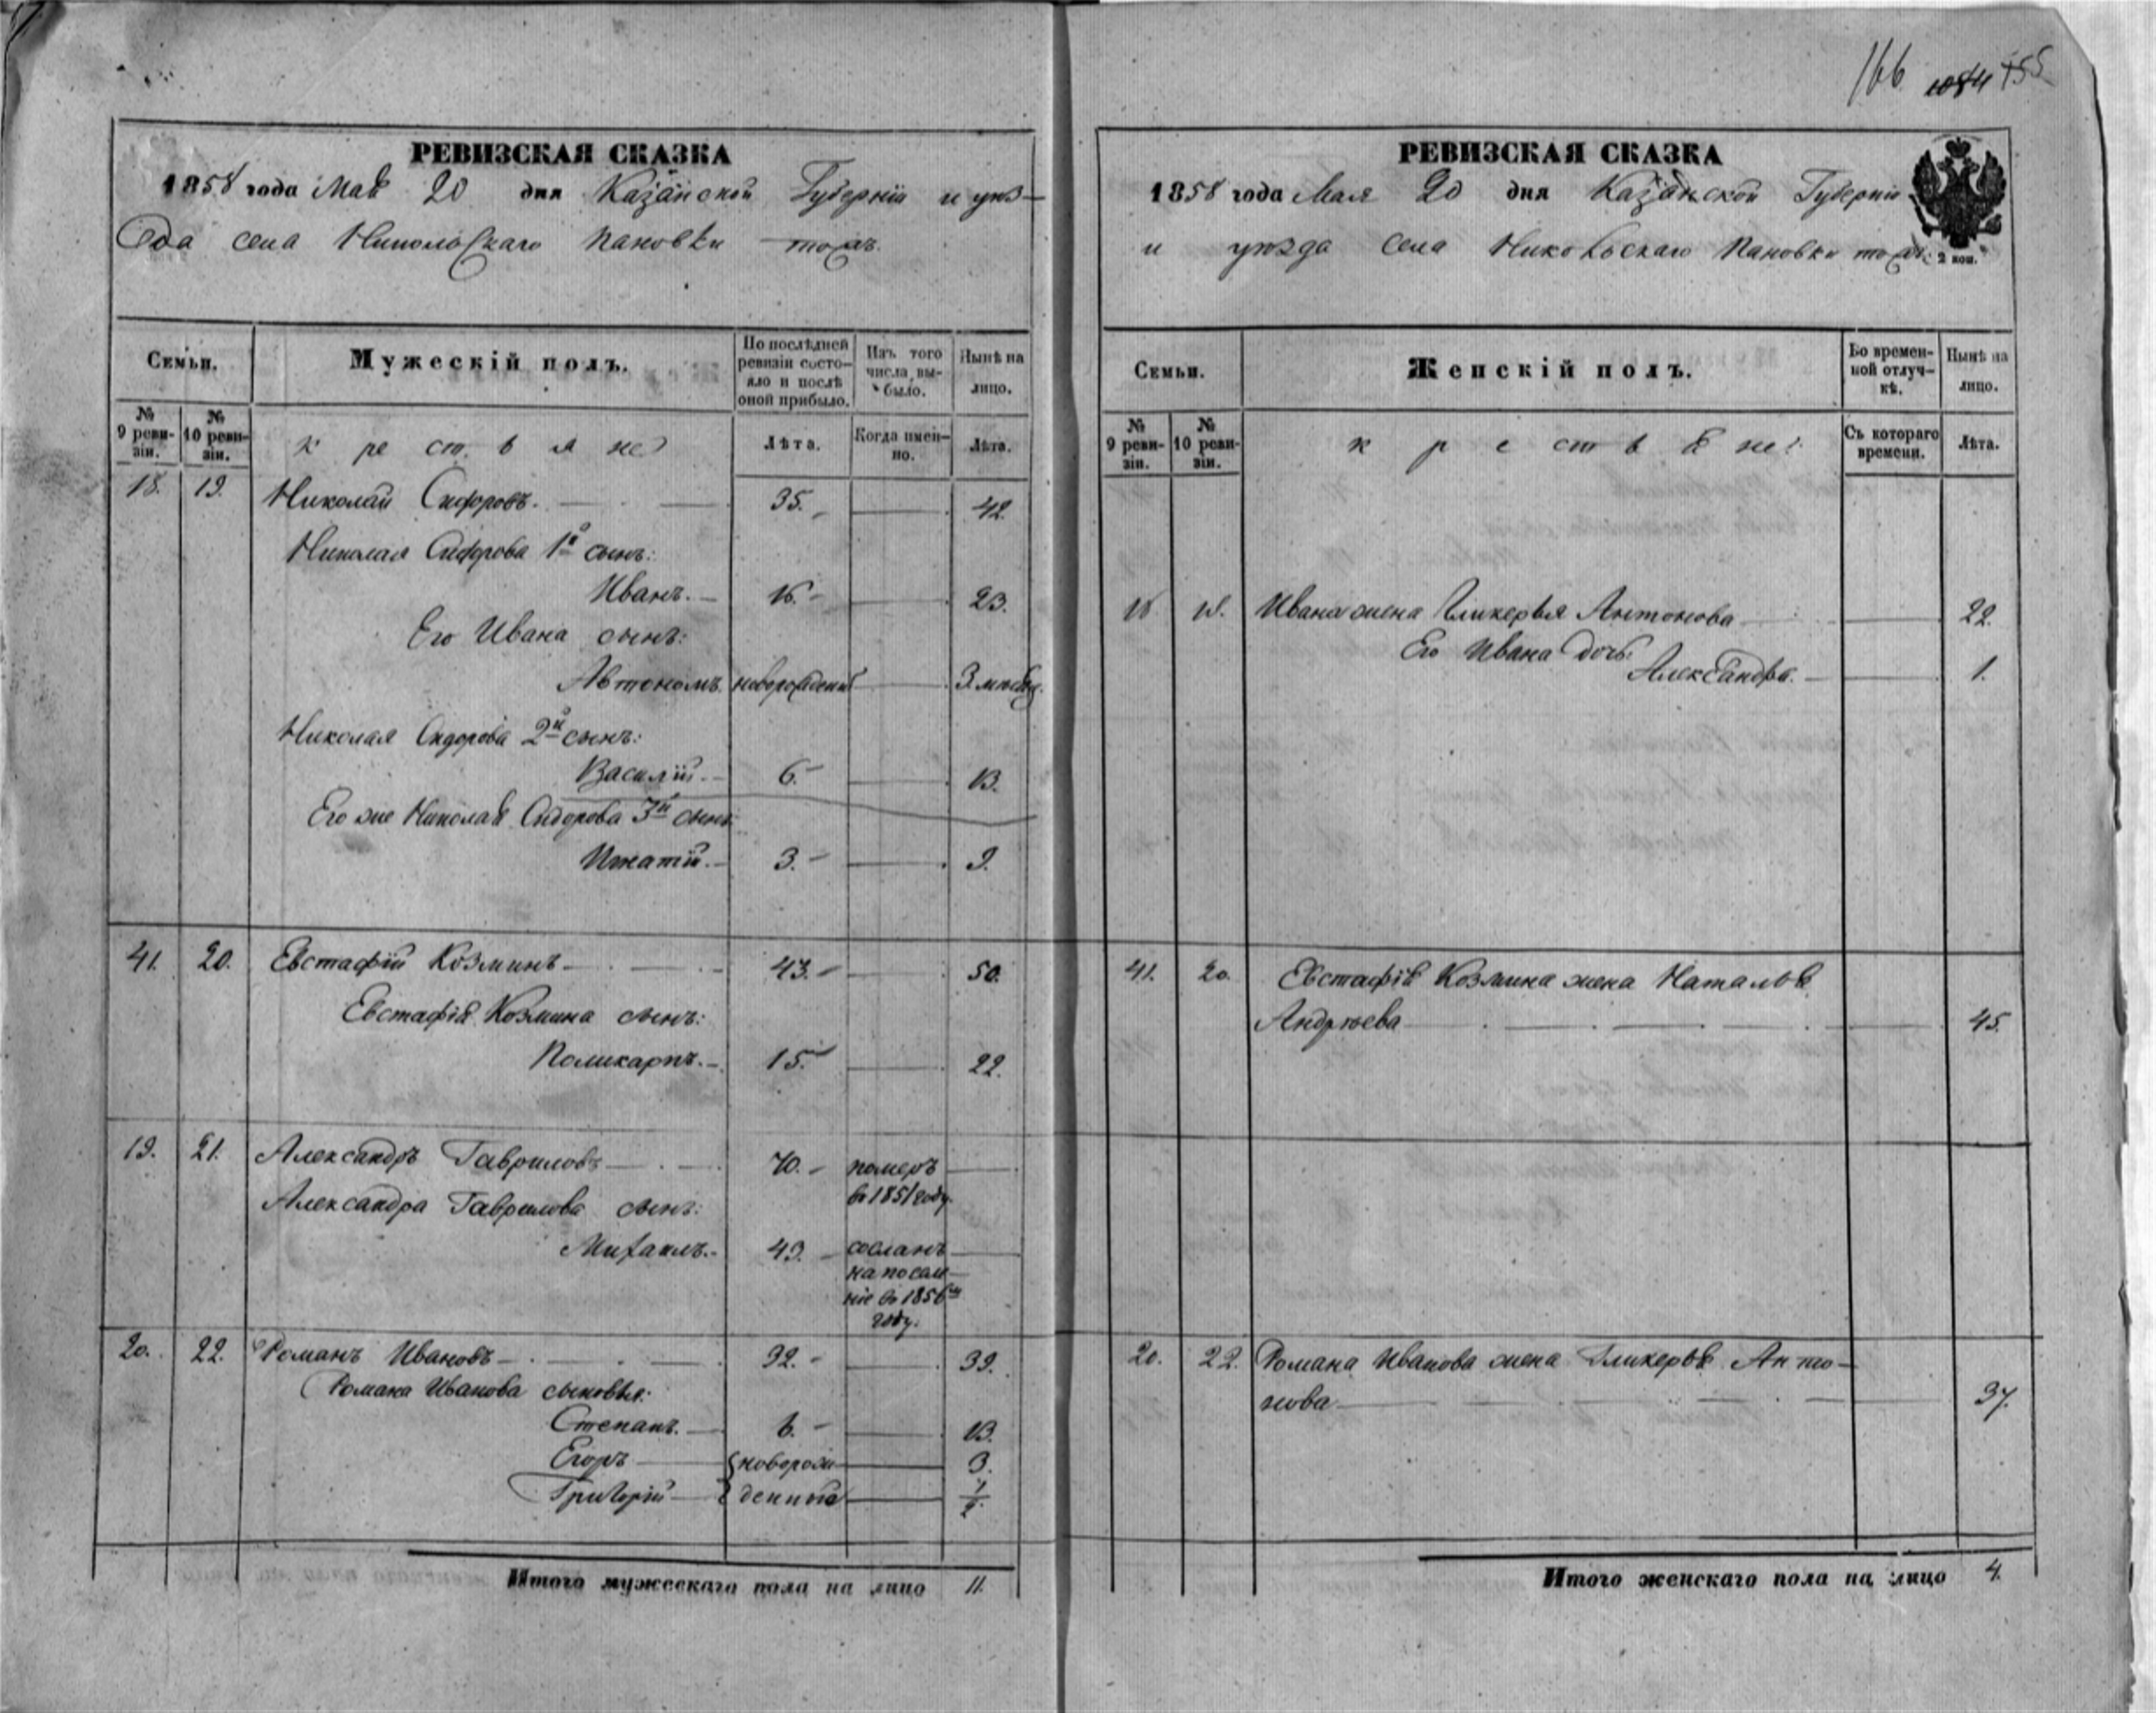 166 1084 155
РЕВИЗСКАЯ СКАЗКА
1858 года Мая 20 дня Казанской Губернiи и уѣз-
да села Никольскаго Пановки тожъ.
Семьи.
Мужескiй полъ.
По послѣдней ревизiи состо-яло и послѣ оной прибыло.
Изъ того числа вы-было.
Нынѣ на лицо.
№ 9 реви-зiи.
№ 10 реви-зiи.
крестьяне:
Лѣта.
Когда имен-но.
Лѣта.
18. 19. Николай Сидоровъ. 35. 42.
Николая Сидорова 1й сынъ:
Иванъ. 16. 23.
Его Ивана сынъ:
Автономъ. новорожденный 3 мѣсяц.
Николая Сидорова 2й сынъ:
Василiй. 6. 13.
Его же Николая Сидорова 3й сынъ
Игнатiй. 3. 9.
41. 20. Евстафiй Козминъ 43. 50.
Евстафiя Козмина сынъ:
Поликарпъ. 15. 22.
19. 21. Александръ Гавриловъ 70. померъ
въ 1851 году.
Александра Гаврилова сынъ:
Михаилъ. 49. сосланъ
на поселе-
нiе въ 1856м
году.
20. 22. Романъ Ивановъ 32. 39.
Романа Иванова сыновья:
Степанъ. 6. 13.
Егоръ новорож- 3.
Григорiй денные 1/2.
Итого мужескаго пола на лицо 11.
РЕВИЗСКАЯ СКАЗКА
1858 года Мая 20 дня Казанской Губернiи
и уѣзда села Никольскаго Пановки тожъ. 2 коп.
Семьи.
Женскiй полъ.
Во времен-ной отлуч-кѣ.
Нынѣ на лицо.
№ 9 реви-зiи.
№ 10 реви-зiи.
крестьяне:
Съ котораго времени.
Лѣта.
18 19. Ивана жена Гликерья Антонова 22.
Его Ивана дочь
Александра. 1.
41. 20. Евстафiя Козмина жена Наталья
Андрѣева 45.
20. 22. Романа Иванова жена Гликерья Анто-
нова 37.
Итого женскаго пола на лицо 4.